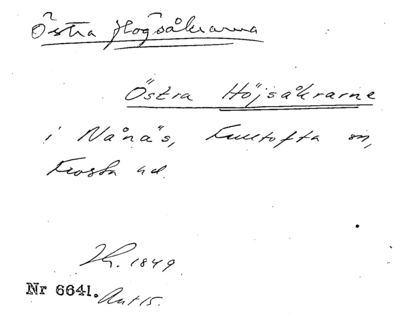 Östra Högsåkrarna
Östra Höjsåkrarne
i Nånäs, Fulltofta sn,
Frosta hd.
1849
Nr 6641. Avt 15.